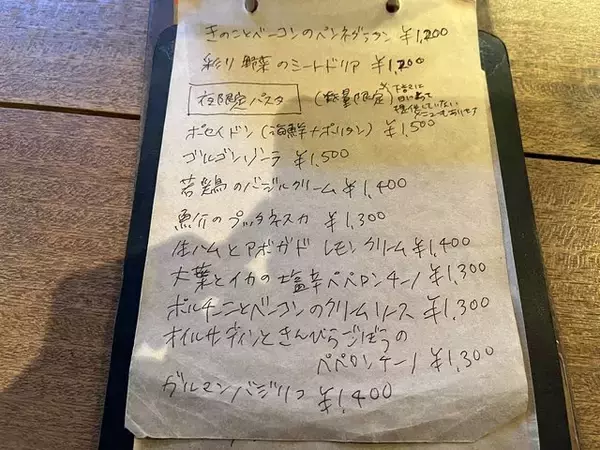 きのことベーコンのペンネグラタン ¥1,200
彩り野菜のミートドリア ¥1,200
夜限定パスタ (数量限定)
日によって
提供していない
メニューもあります
ポセイドン(海鮮ナポリタン) ¥1,500
ゴルゴンゾーラ ¥1,500
若鶏のバジルクリーム ¥1,400
魚介のプッタネスカ ¥1,300
生ハムとアボガド レモンクリーム ¥1,400
大葉とイカの塩辛ペペロンチーノ ¥1,300
ポルチーニとベーコンのクリームソース ¥1,300
オイルサーディンときんぴらごぼうの
ペペロンチーノ ¥1,300
ガルマンバジリコ ¥1,400